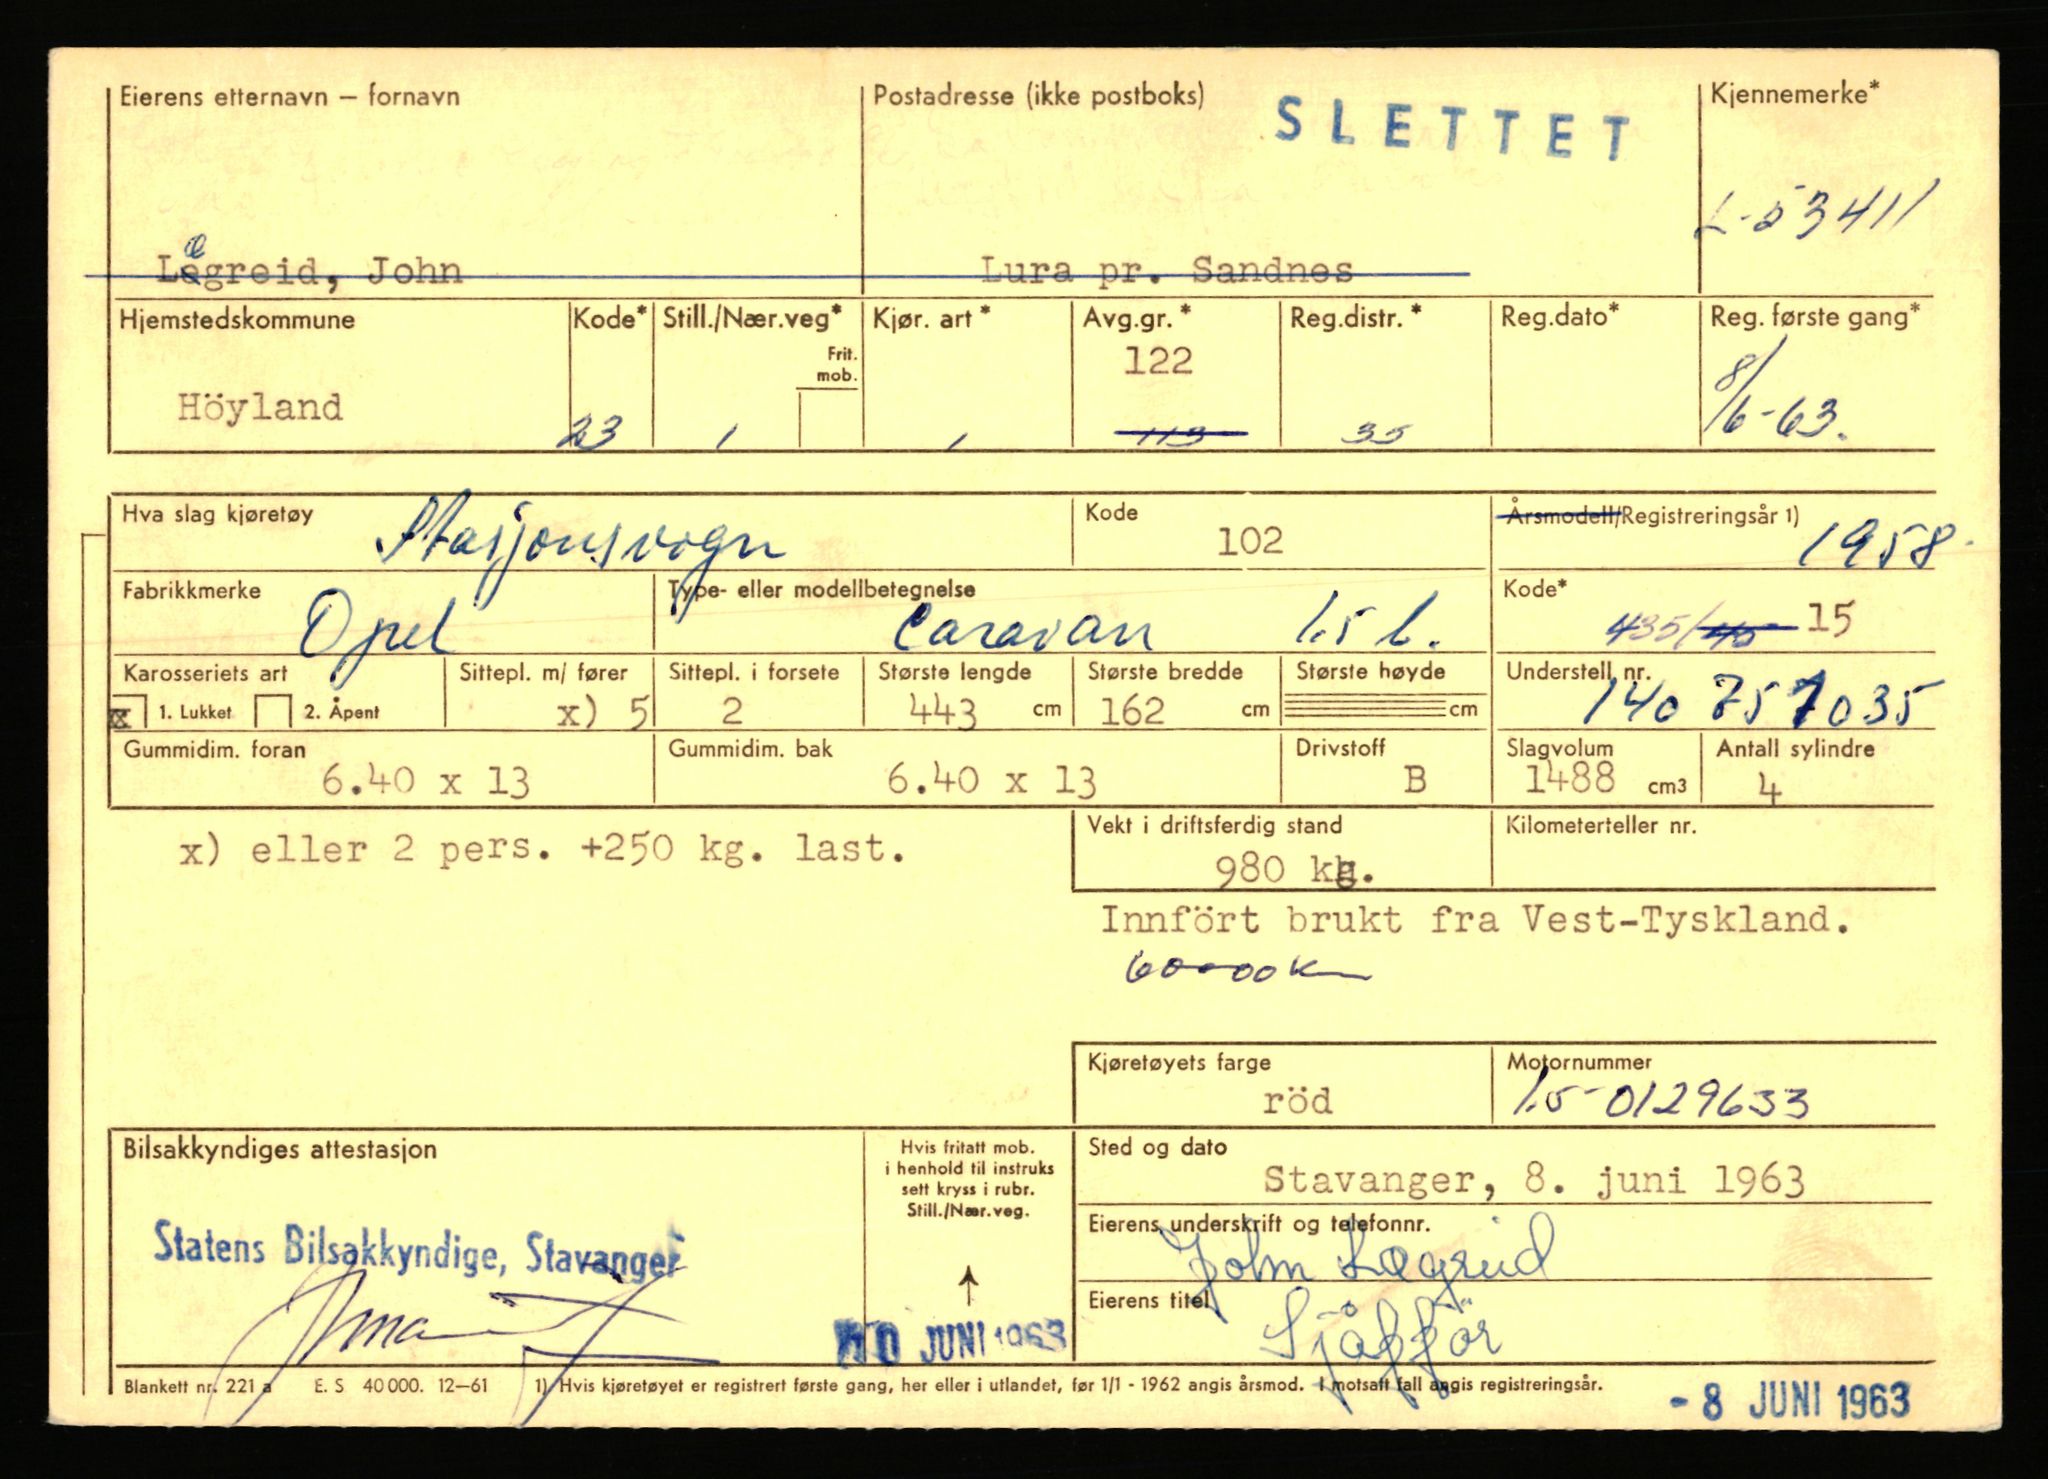 Eierens etternavn – fornavn
Postadresse (ikke postboks)
SLETTET
Kjennemerke*
L-53411
Lægreid, John
Lura pr. Sandnes
Hjemstedskommune
Kode*
Still./Nær.veg*
Frit. mob.
Kjør. art *
Avg.gr. *
Reg.distr. *
Reg.dato*
Reg. første gang*
122
Höyland
23
1
1
113
35
8/6-63.
Hva slag kjøretøy
Stasjonsvogn
Kode
102
Årsmodell/Registreringsår 1)
1958
Fabrikkmerke
Opel
Type- eller modellbetegnelse
Caravan 1.5 l.
Kode*
435/45 15
Karosseriets art
x 1. Lukket 2. Åpent
Sittepl. m/ fører
x) 5
Sittepl. i forsete
2
Største lengde
443 cm
Største bredde
162 cm
Største høyde
cm
Understell nr.
140 757035
Gummidim. foran
6.40 x 13
Gummidim. bak
6.40 x 13
Drivstoff
B
Slagvolum
1488 cm3
Antall sylindre
4
x) eller 2 pers. +250 kg. last.
Vekt i driftsferdig stand
980 kg.
Kilometerteller nr.
Innfört brukt fra Vest-Tyskland.
60000 km
Kjøretøyets farge
röd
Motornummer
1.5-0129633
Bilsakkyndiges attestasjon
Hvis fritatt mob.
i henhold til instruks
sett kryss i rubr.
Still./Nær.veg.
Sted og dato
Stavanger, 8. juni 1963
Statens Bilsakkyndige, Stavanger
Eierens underskrift og telefonnr.
John Lægreid
Eierens titel
Sjåffør
10 JUNI 1963
Blankett nr. 221 a E. S 40 000. 12–61 1) Hvis kjøretøyet er registrert første gang, her eller i utlandet, før 1/1 - 1962 angis årsmod. I motsatt fall angis registreringsår.
- 8 JUNI 1963